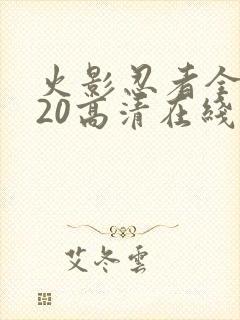 火影忍者全
20高清在线
艾冬雲